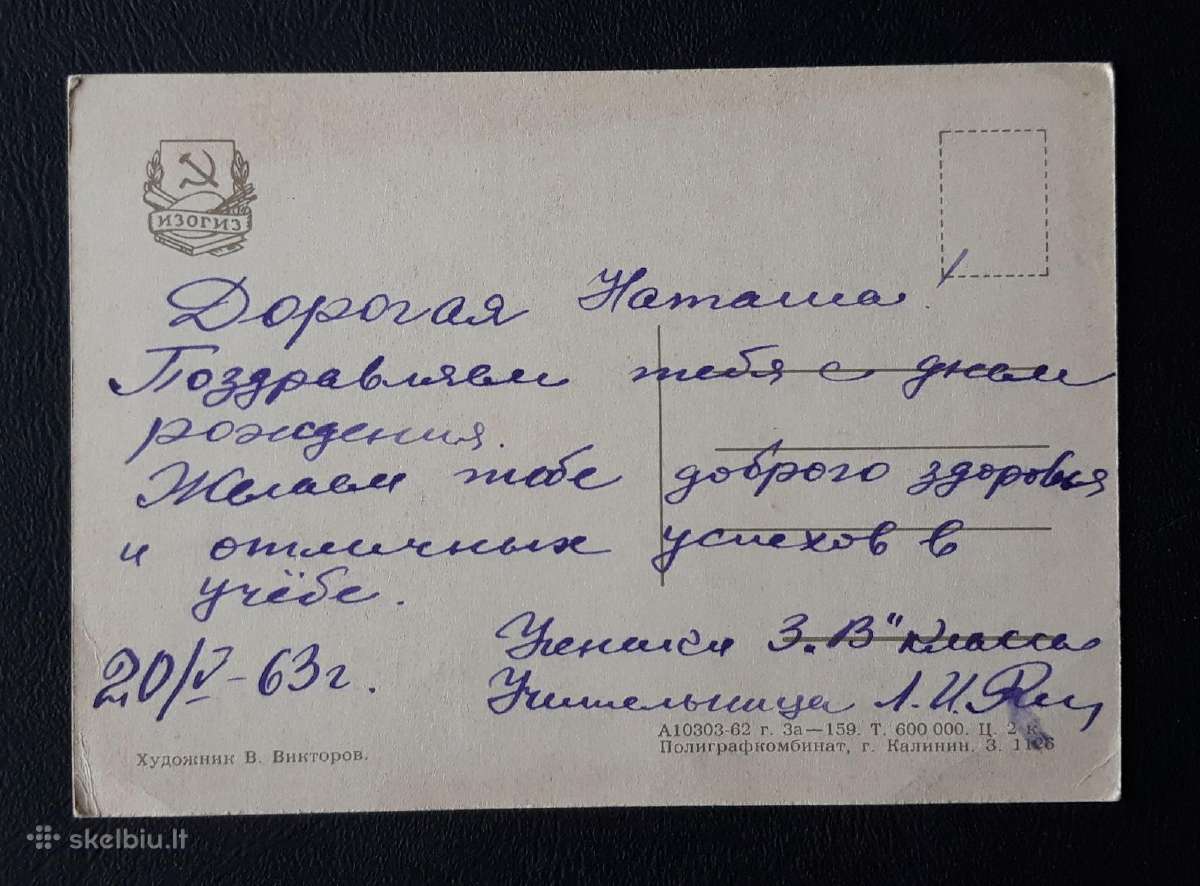 ИЗОГИЗ
Дорогая Наташа!
Поздравляем тебя с днем
рождения.
Желаем тебе доброго здоровья
и отличных успехов в
учёбе.
Ученики 3 „В" класса
20/V-63 г.
Учительница Л. И.
А10303-62 г. За—159. Т. 600 000. Ц. 2 к.
Художник В. Викторов.
Полиграфкомбинат, г. Калинин. З. 1126
skelbiu.lt